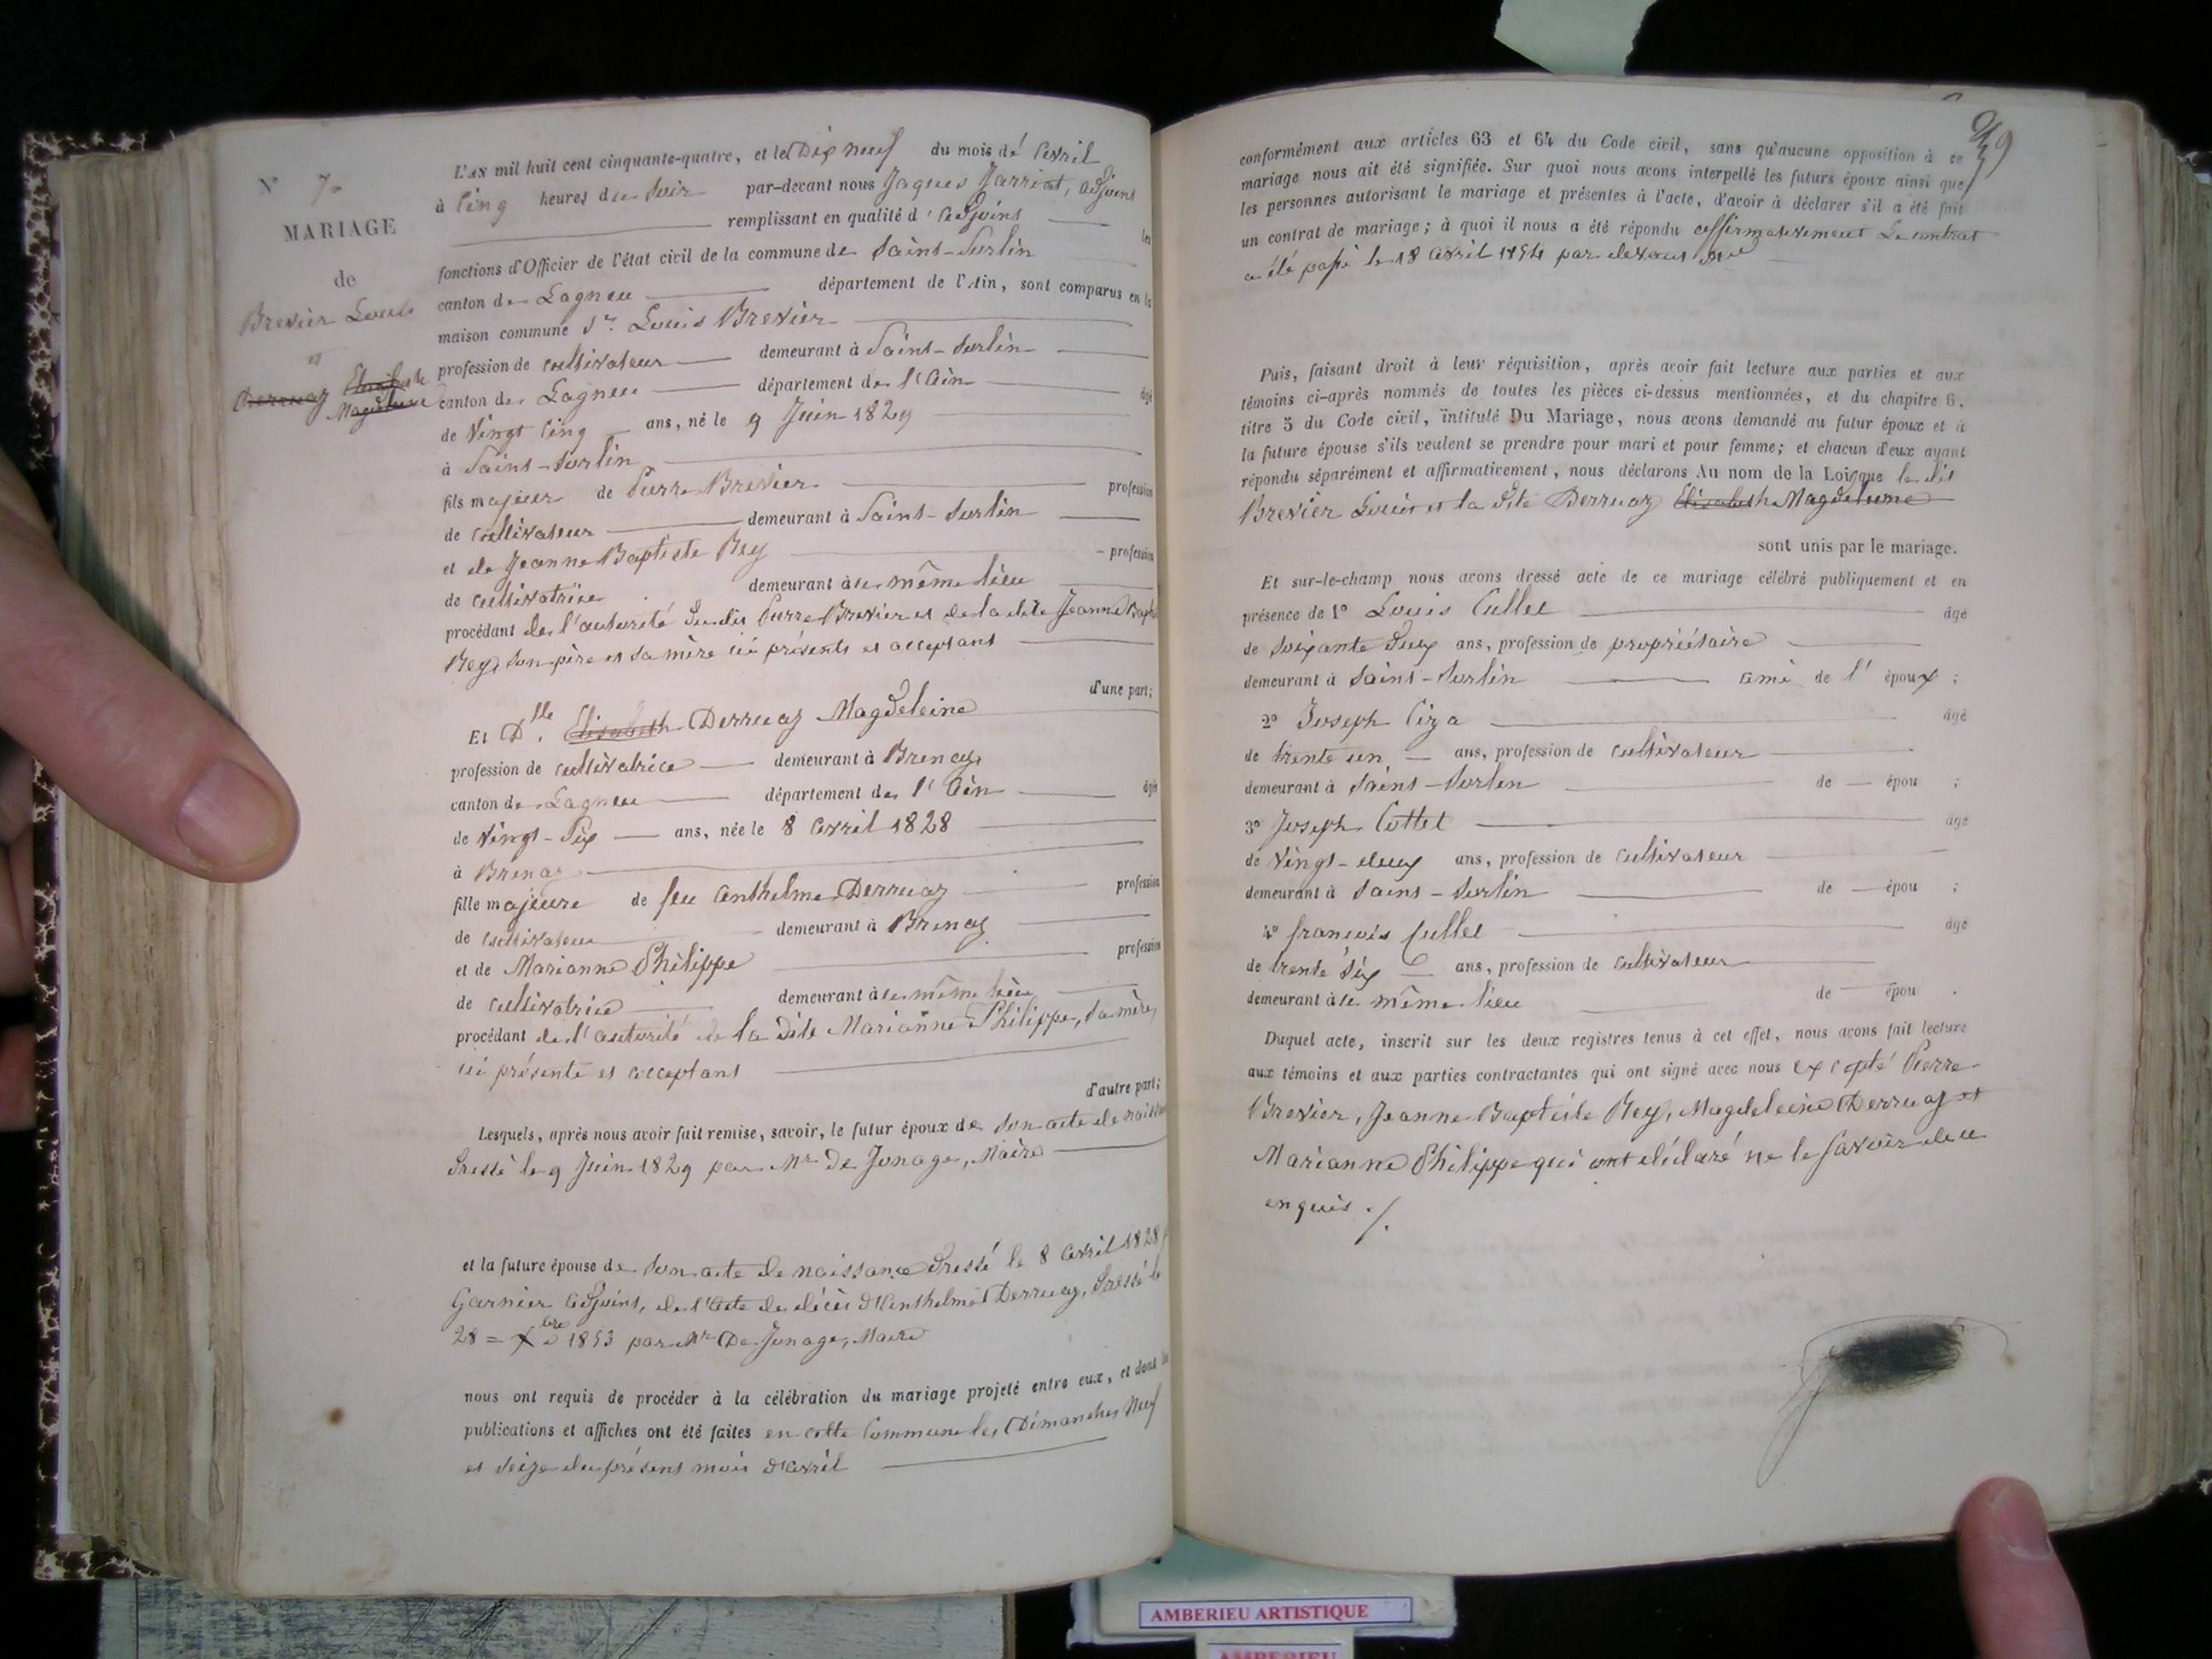 N° 7.
MARIAGE
de
Brevier Louis
et
Derruaz Elisabeth
Magdeleine
L'AN mil huit cent cinquante-quatre, et le Dix neuf du mois de Avril
à Cinq heures du Soir par-devant nous Jaques Jarriat, adjoint
remplissant en qualité d'adjoint les
fonctions d'Officier de l'état civil de la commune de Saint-Sorlin
canton de Lagneu département de l'Ain, sont comparus en la
maison commune Sr. Louis Brevier
profession de cultivateur demeurant à Saint-Sorlin
canton de Lagneu département de l'Ain âgé
de Vingt Cinq ans, né le 9 Juin 1829
à Saint-Sorlin
fils majeur de Pierre Brevier profession
de cultivateur demeurant à Saint-Sorlin
et de Jeanne Baptiste Rey profession
de cultivatrice demeurant à le même lieu
procédant de l'autorité dudit Pierre Brevier et de la dite Jeanne Bapte
Rey, son père et sa mère ici présents et acceptant
d'une part;
Et Dlle. Elisabeth Derruaz Magdeleine
profession de cultivatrice demeurant à Brenaz
canton de Lagneu département de l'Ain âgée
de Vingt-Six ans, née le 8 Avril 1828
à Brenaz
fille majeure de feu Anthelme Derruaz profession
de cultivateur demeurant à Brenaz
et de Marianne Philippe profession
de cultivatrice demeurant à le même lieu
procédant de l'autorité de la dite Marianne Philippe, sa mère,
ici présente et acceptant
d'autre part;
Lesquels, après nous avoir fait remise, savoir, le futur époux de son acte de naissance
dressé le 9 Juin 1829 par Mr De Jonage, Maire
et la future épouse de son acte de naissance dressé le 8 Avril 1828
Garnier adjoint, de l'acte de décès d'Anthelme Derruaz, dressé le
28 = Xbre 1853 par Mr De Jonage, Maire
nous ont requis de procéder à la célébration du mariage projeté entre eux, et dont les
publications et affiches ont été faites en cette Commune les Dimanches Neuf
et Seize du présent mois d'Avril
conformément aux articles 63 et 64 du Code civil, sans qu'aucune opposition à ce
mariage nous ait été signifiée. Sur quoi nous avons interpellé les futurs époux ainsi que
les personnes autorisant le mariage et présentes à l'acte, d'avoir à déclarer s'il a été fait
un contrat de mariage; à quoi il nous a été répondu affirmativement Le contrat
a été passé le 18 Avril 1854 par devant
Puis, faisant droit à leur réquisition, après avoir fait lecture aux parties et aux
témoins ci-après nommés de toutes les pièces ci-dessus mentionnées, et du chapitre 6,
titre 5 du Code civil, intitulé Du Mariage, nous avons demandé au futur époux et à
la future épouse s'ils veulent se prendre pour mari et pour femme; et chacun d'eux ayant
répondu séparément et affirmativement, nous déclarons Au nom de la Loi que le dit
Brevier Louis et la dite Derruaz Elisabeth Magdeleine
sont unis par le mariage.
Et sur-le-champ nous avons dressé acte de ce mariage célébré publiquement et en
présence de 1° Louis Cullet âgé
de soixante deux ans, profession de propriétaire
demeurant à Saint-Sorlin ami de l'époux;
2° Joseph Ciza âgé
de trente un ans, profession de cultivateur
demeurant à Saint-Sorlin de épou ;
3° Joseph Cottet âgé
de Vingt-deux ans, profession de cultivateur
demeurant à Saint-Sorlin de épou ;
4° françois Cullet âgé
de trente six ans, profession de cultivateur
demeurant à le même lieu de épou .
Duquel acte, inscrit sur les deux registres tenus à cet effet, nous avons fait lecture
aux témoins et aux parties contractantes qui ont signé avec nous excepté Pierre
Brevier, Jeanne Baptiste Rey, Magdeleine Derruaz et
Marianne Philippe qui ont déclaré ne le savoir de ce
enquis ./.
AMBERIEU ARTISTIQUE
AMBERIEU